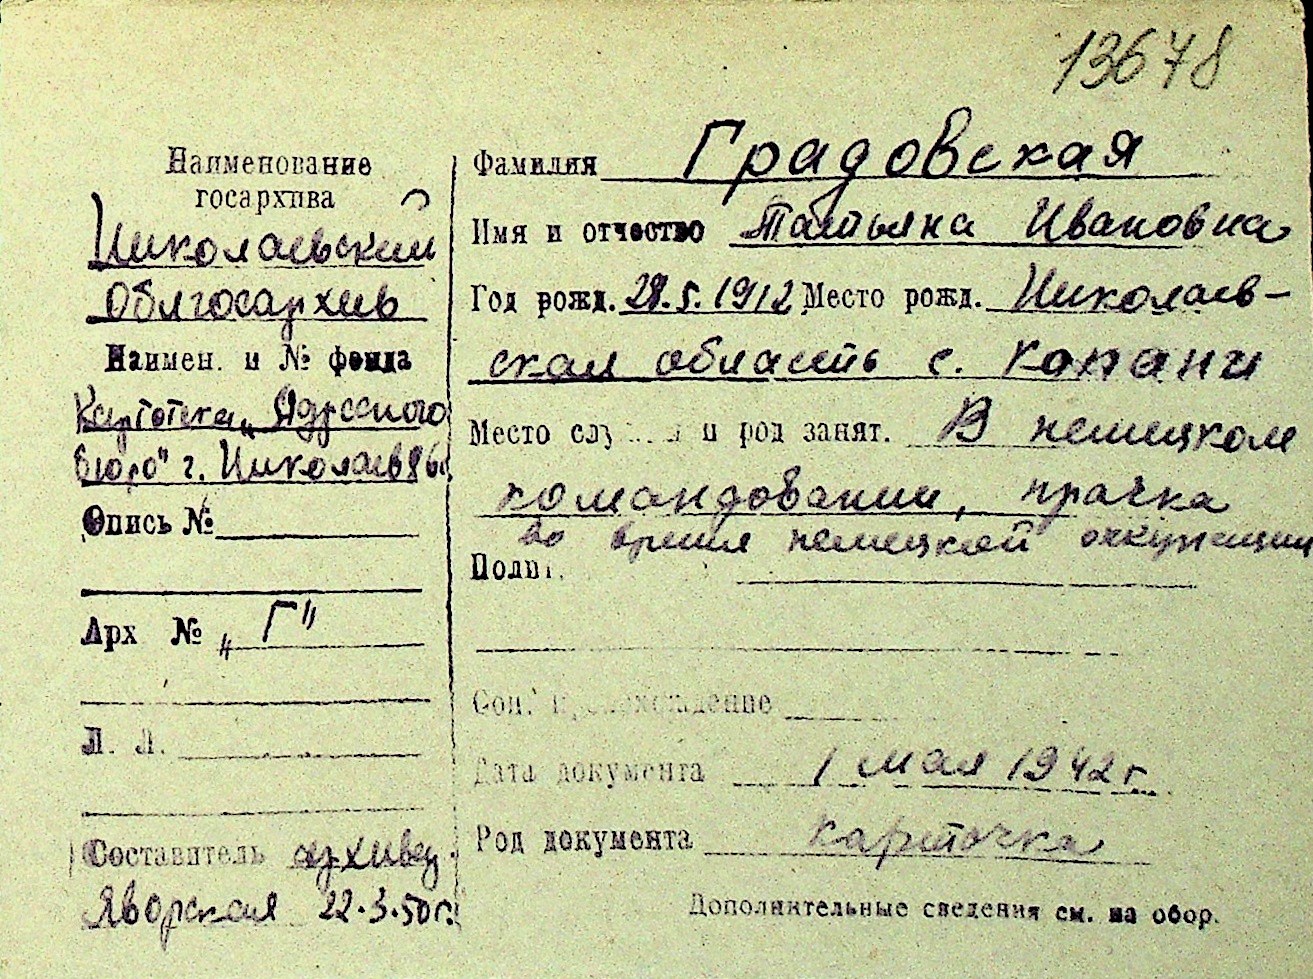 13678
Наименование
госархива
Николаевский
Облгосархив
Наимен. и № фонда
Картотека „Адресного
бюро" г. Николаев
Опись №
Арх № „Г"
Л. Л.
Составитель архивар.
Яворская 22.3.50г.
Фамилия Градовская
Имя и отчество Татьяна Ивановна
Год рожд. 1912 Место рожд. Николаев-
ская область с. Копани
Место и род занят. В немецком
командовании, прачка
во время немецкой оккупации
Полит.
Соц. происхождение
Дата документа 1 мая 1942 г.
Род документа карточка
Дополнительные сведения см. на обор.